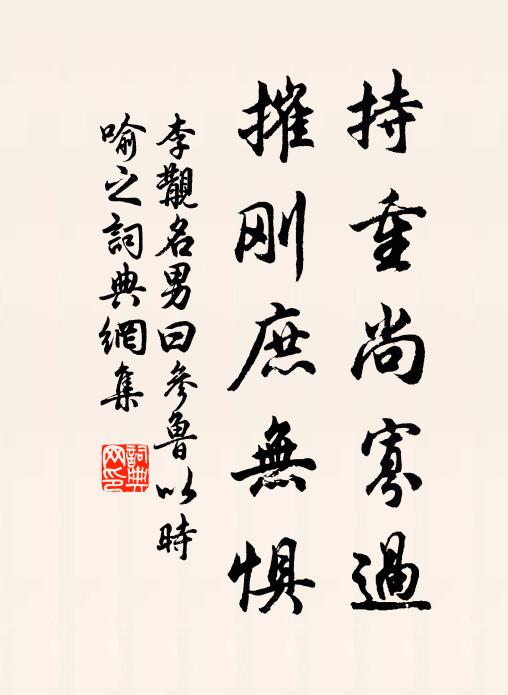 持重尚寡過
摧剛庶無懼
李覯名男曰參魯以時
喻之詞典網集
詞典
网印